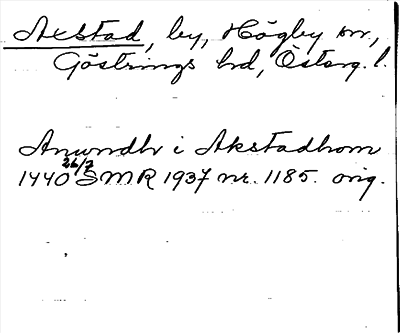 Axstad, by, Högby sn,
Göstrings hd, Östarg. l.
Anundhr i Akstadhom
1440 26/7 SMR 1937 nr. 1185. orig.